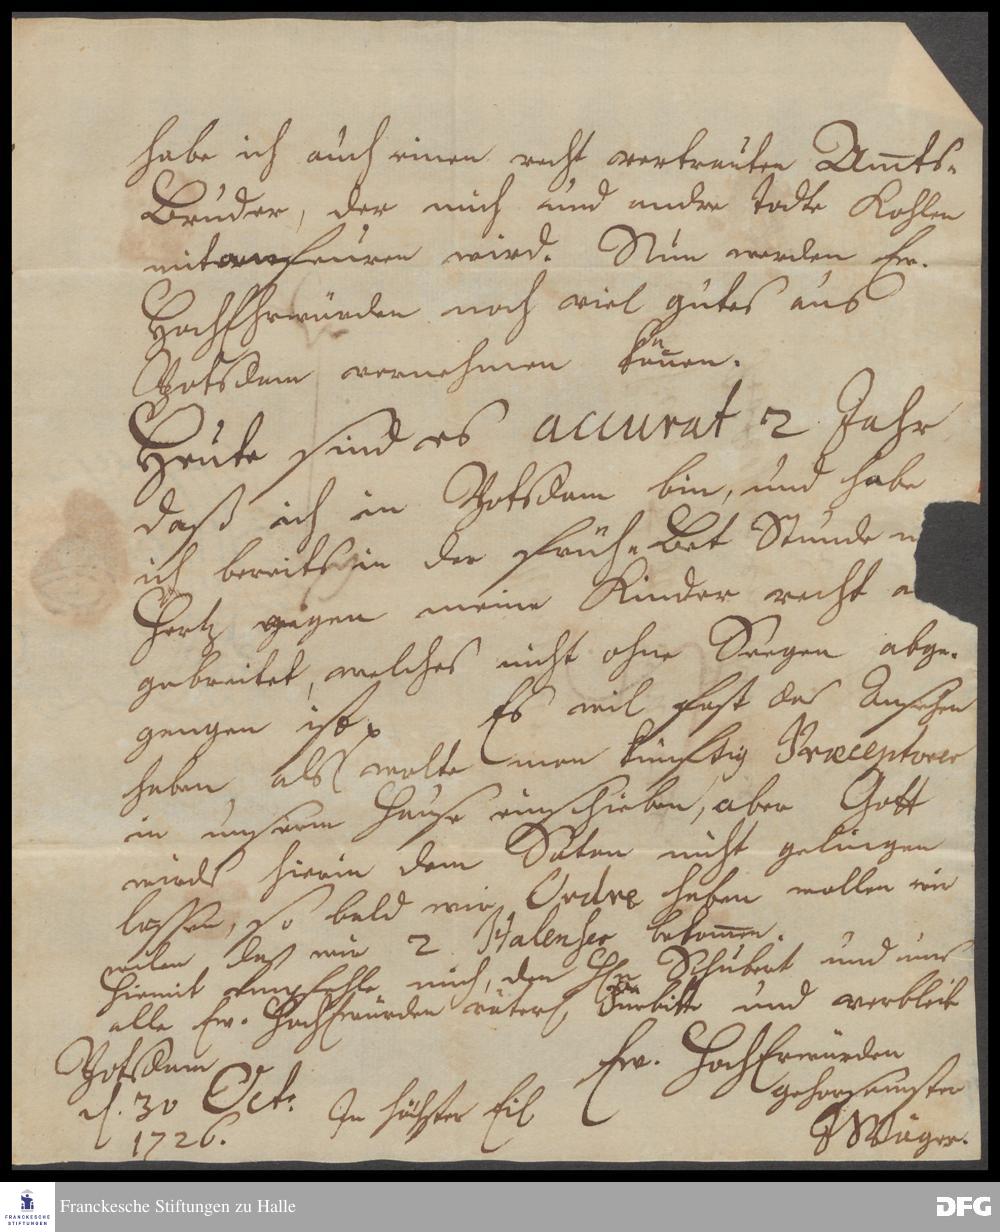 habe ich auch einen recht vertrauten Am̅ts-
Bruder, der mich und andre todte Kohlen
mit anfeuren wird. Nun werden Ew.
HochEhrwürden noch viel gutes aus
Potsdam vernehmen kön̅en.
Heute sind es accurat 2 Jahr
daß ich in Potsdam bin, und habe
ich bereits in der früh-Bet Stunde
Hertz gegen meine Kinder recht
gebreitet, welches nicht ohne Seegen abge-
gangen ist. Es wil fast das Ansehen
haben, als wolte man künftig Præceptores
in unserm Hause einschieben, aber Gott
wirds hierin dem Satan nicht gelingen
lassen, so bald wir Ordre haben wollen wir
eilen daß wir 2 Halenser bekom̅en.
Hiemit empfehle mich, den H. Schubert und uns
alle Ew. HochEhrwürden väterl. Fürbitte und verbleibe
Potsdam
d. 30 Oct.
1726.
In höchster Eil
Ew. HochErwürden
gehorsamster
Wäger.
Franckesche Stiftungen zu Halle
FRANCKESCHE
STIFTUNGEN
DFG